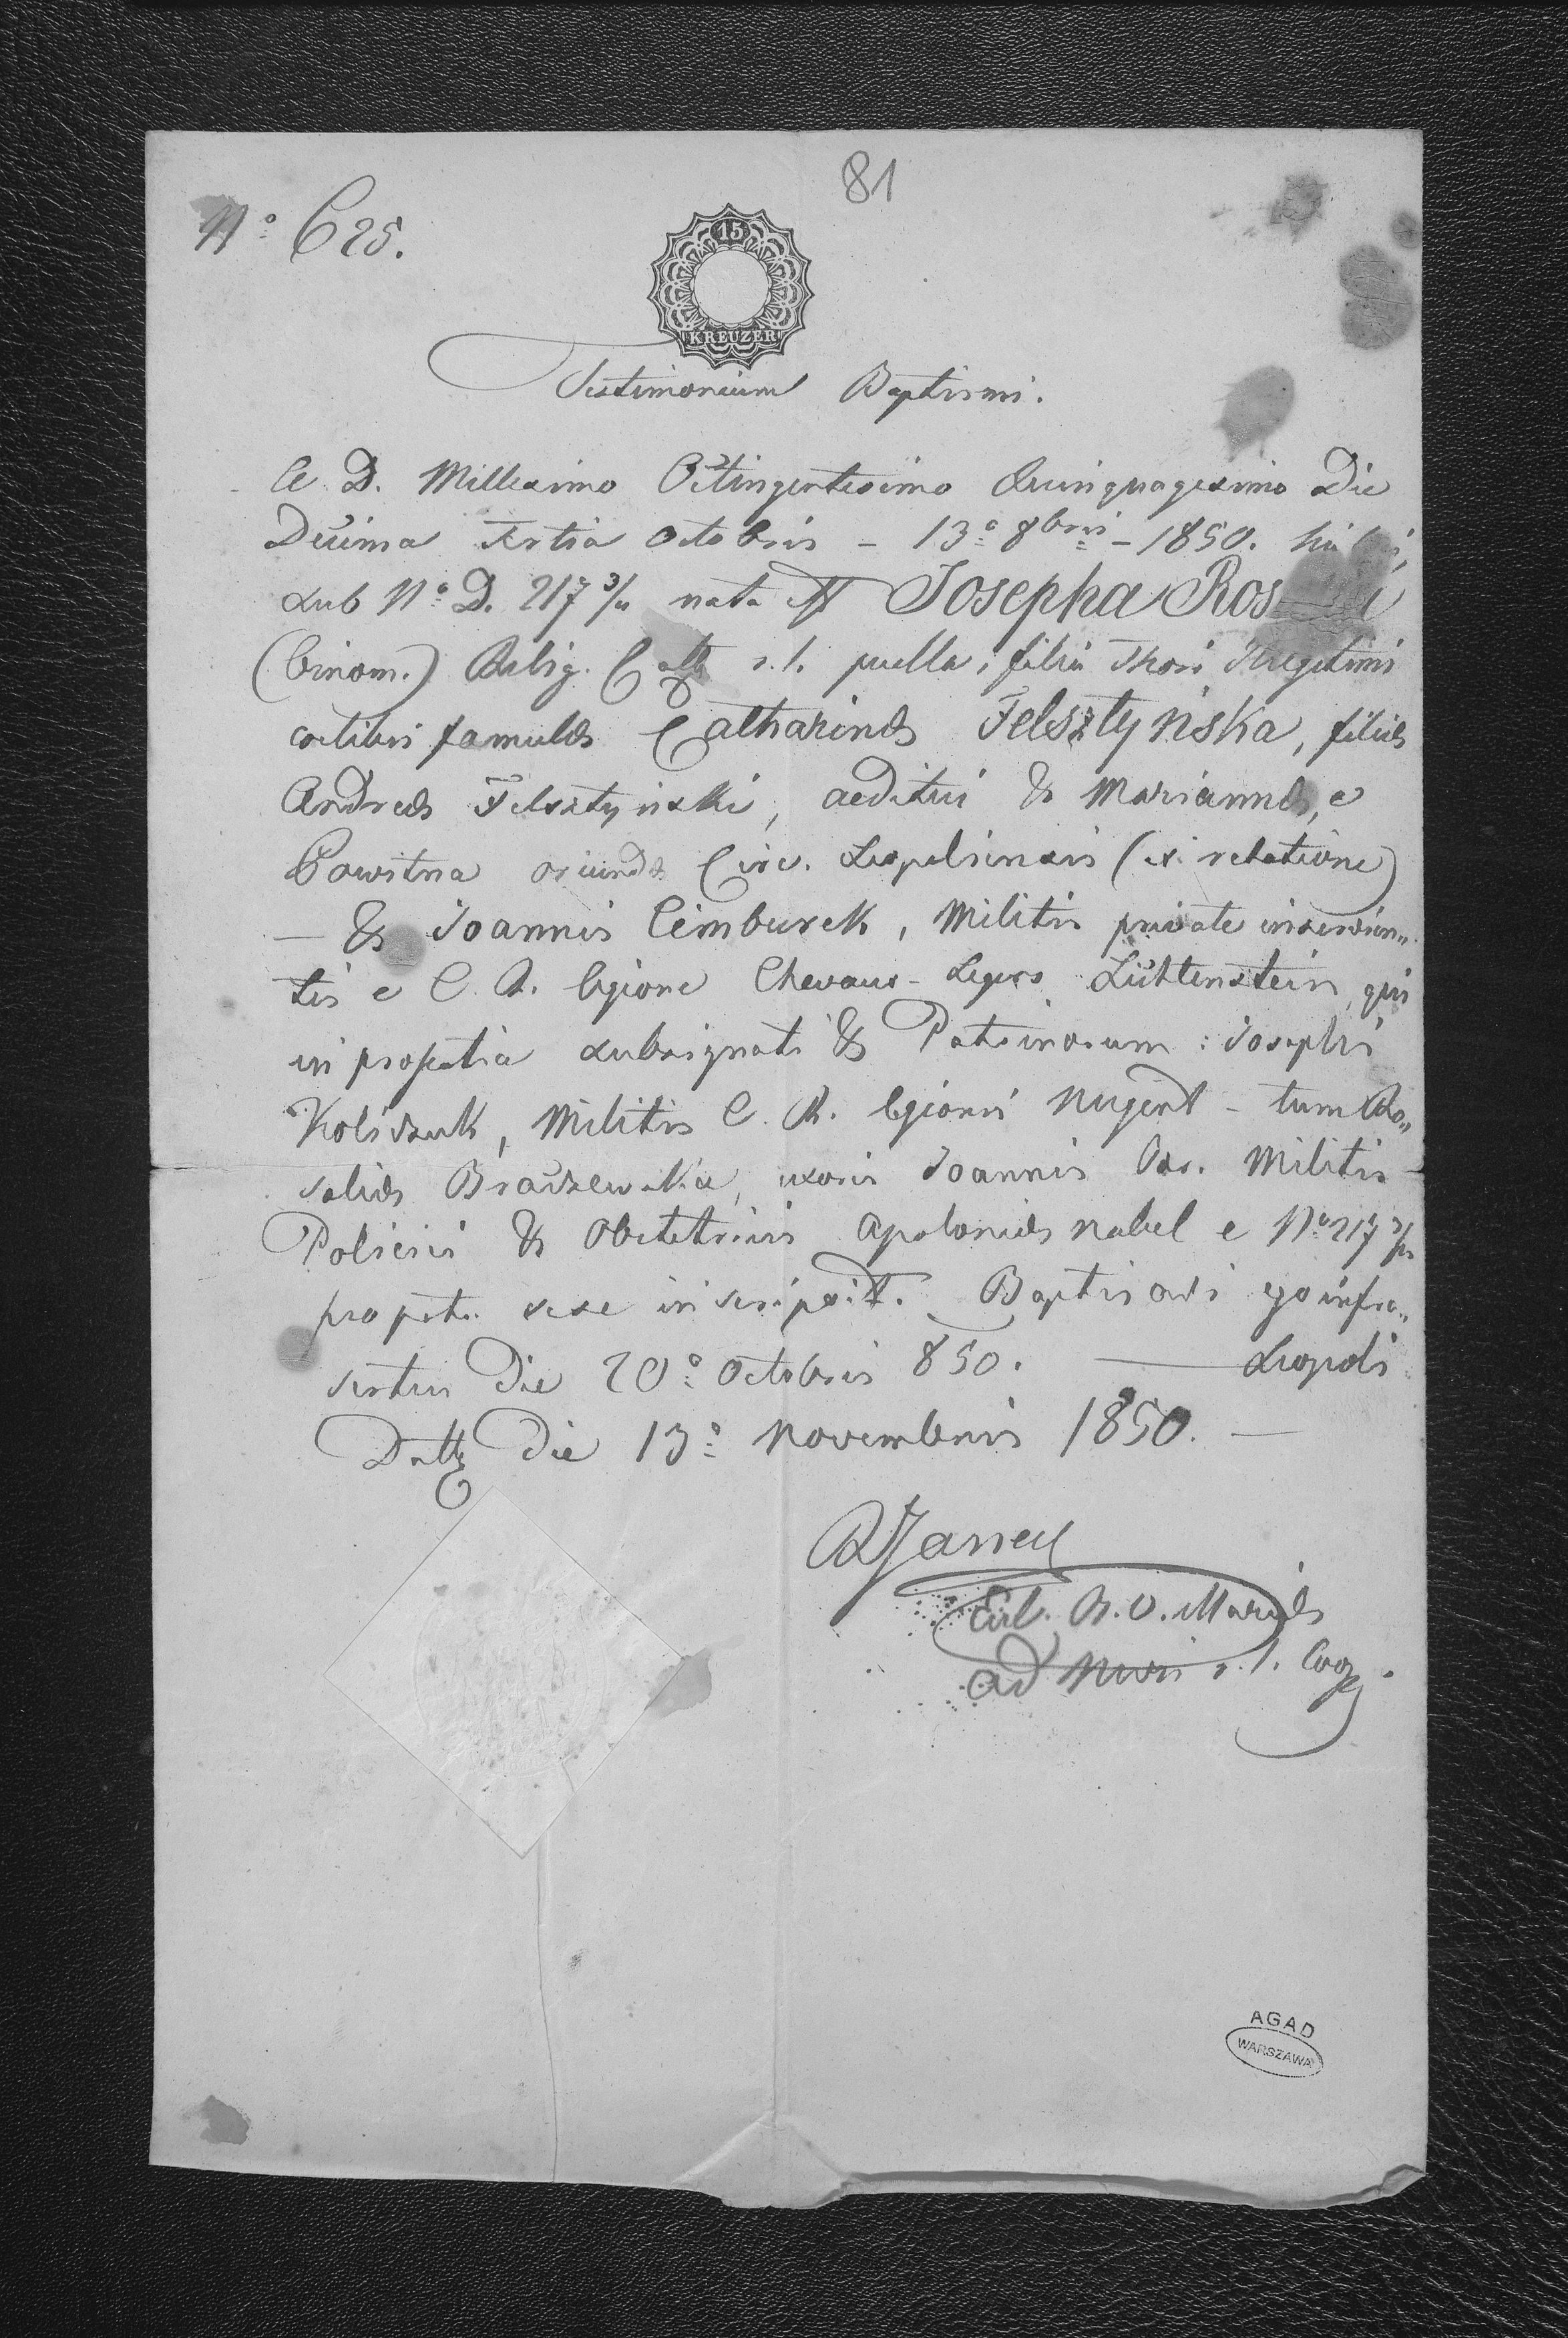 81
Nº 625.
15
KREUZER
Testimonium Baptismi.
A. D. Millesimo Octingentesimo Quinquagesimo Die
Decima Tertia Octobris – 13ª 8bris – 1850.
sub Nº D. 217 3/4 nata est Josepha Ros
(binom.) Relig. Cath r. l. puella, filia Thori Illegitimi
coelibis famulae Catharinae Felsztyńska, filiae
Andreae Felsztyński, aeditui & Mariannae, e
Powitna oriundae Circ. Leopoliensis (ex relatione)
– & Joannis Cimburek, Militis private inservien„
tis e C. R. legione Chevaux-Legers Lichtenstein, qui
in praesentia subsignati & Patrinorum: Josephi
Koliszuk, Militis C. R. legionis Nugent – tum Ro„
saliae Braszewska, uxoris Joannis Militis
Policiei & Obstetricis Apoloniae Nabel e Nº 217 3/4
pro patre sese inscripsit. Baptisavi ego infra„
scriptus Die 20ª Octobris 850. — Leopoli
Datt Die 13ª Novembris 1850. —
Janey
Ecl. B. V. Mariae
ad Nives r. l. Coop.
AGAD
WARSZAWA